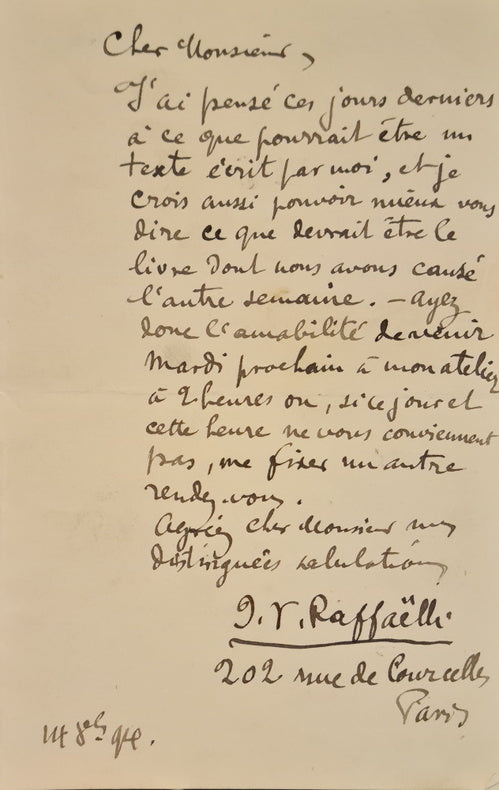 Cher Monsieur,
J'ai pensé ces jours derniers
à ce que pourrait être un
texte écrit par moi, et je
crois aussi pouvoir mieux vous
dire ce que devrait être le
livre dont nous avons causé
l'autre semaine. — Ayez
donc l'amabilité de venir
Mardi prochain à mon atelier
à 2 heures ou, si ce jour et
cette heure ne vous conviennent
pas, me fixer un autre
rendez-vous.
Agréez cher Monsieur mes
distinguées salutations
J. F. Raffaëlli
202 rue de Courcelles
Paris
8bre 94.